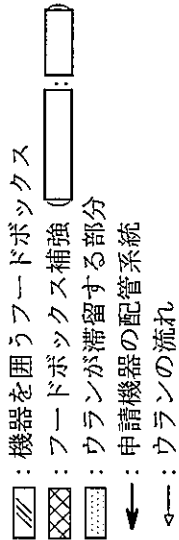 ：機器を囲うフードボックス
：フードボックス補強
：ウランが滞留する部分
：申請機器の配管系統
：ウランの流れ